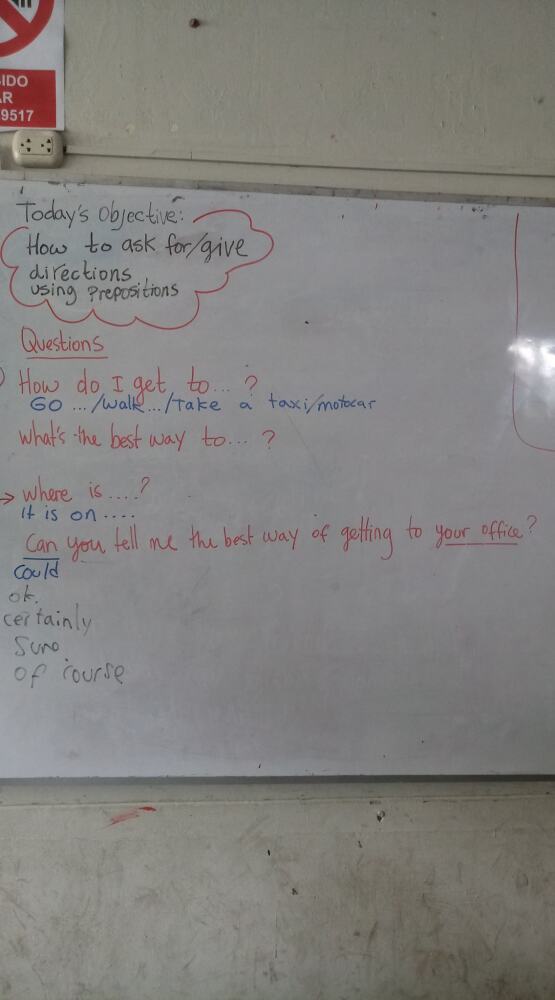 IDO
AR
9517
Today's Objective:
How to ask for/give
directions
using Prepositions
Questions
How do I get to... ?
Go .../walk.../Take a taxi/motocar
what's the best way to... ?
→ where is ....?
it is on ....
Can you tell me the best way of getting to your office?
could
ok.
certainly
Sure
of course